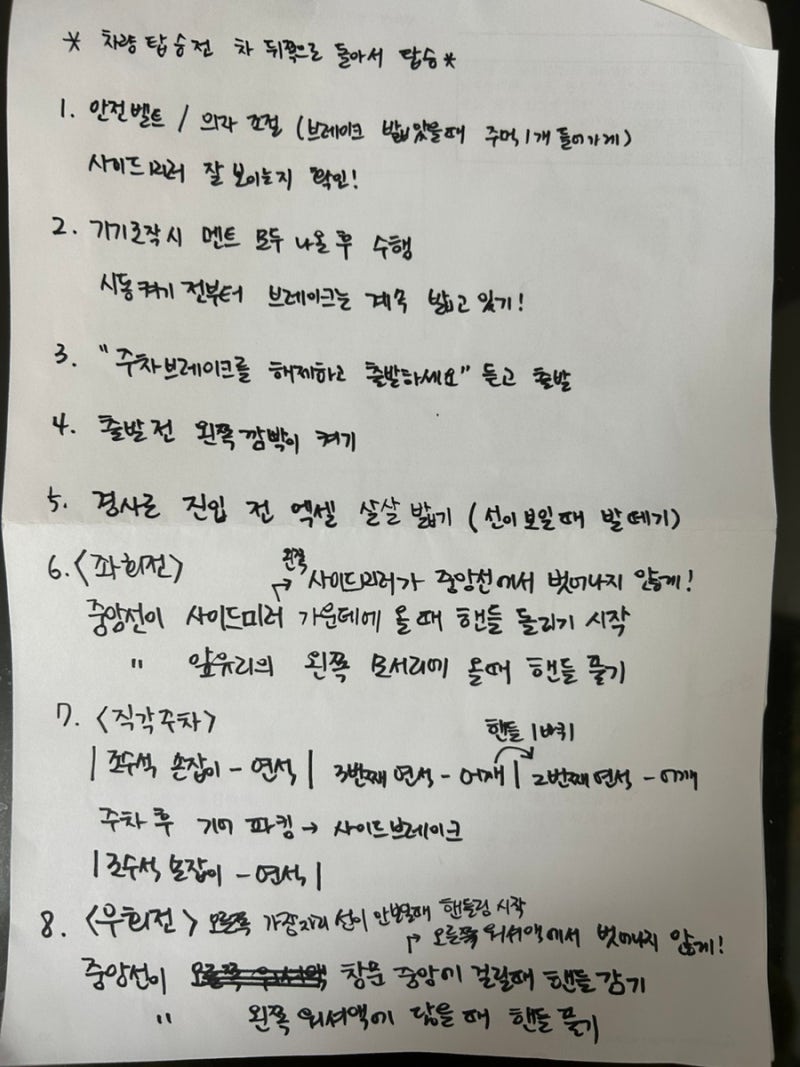 * 차량 탑승전 차 뒤쪽으로 돌아서 탑승 *
1. 안전벨트 / 의자 조절 (브레이크 밟았을때 주먹 1개 들어가게)
사이드미러 잘 보이는지 확인!
2. 기기조작시 멘트 모두 나온 후 수행
시동켜기 전부터 브레이크는 계속 밟고 있기!
3. "주차브레이크를 해제하고 출발하세요" 듣고 출발
4. 출발 전 왼쪽 깜빡이 켜기
5. 경사로 진입 전 엑셀 살살 밟기 (선이 보일때 발 떼기)
6. <좌회전>
왼쪽
→ 사이드미러가 중앙선에서 벗어나지 않게!
중앙선이 사이드미러 가운데에 올 때 핸들 돌리기 시작
" 앞유리의 왼쪽 모서리에 올때 핸들 풀기
7. <직각주차>
핸들 1바퀴
| 조수석 손잡이 - 연석 | 3번째 연석 - 어깨 | 2번째 연석 - 어깨
주차 후 기어 파킹 → 사이드브레이크
| 조수석 손잡이 - 연석 |
8. <우회전> 오른쪽 가장자리 선이 안보일때 핸들링 시작
→ 오른쪽 워셔액에서 벗어나지 않게!
중앙선이 오른쪽 워셔액 창문 중앙에 걸릴때 핸들 감기
" 왼쪽 워셔액에 닿을 때 핸들 풀기